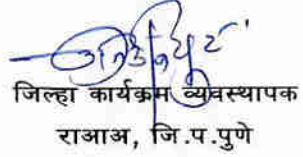 जिल्हा कार्यक्रम व्यवस्थापक
राआअ, जि.प.पुणे